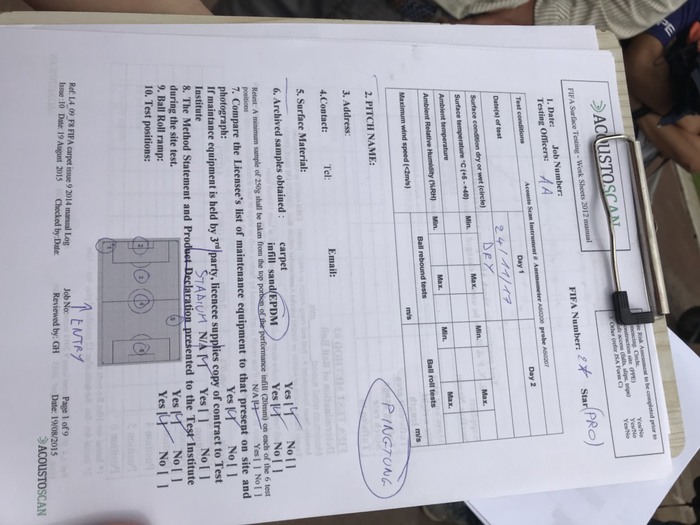 ACOUSTOSCAN
Risk Assessment to be completed prior to
Yes/No
(PPE) Yes/No
(falls, slips, trips) Yes/No
(refer JSA Form C)
FIFA Surface Testing - Work Sheets 2012 manual
FIFA Number: 2* Star (PRO)
1. Date: Job Number:
Testing Officers: AA
Acousto Scan Instrument # Anemometer AS0206 probe AS0207
Test conditions Day 1 Day 2
Date(s) of test 24/11/17
Surface condition dry or wet (circle) DRY
Surface temperature °C (+5 - +40) Min. Max. Min. Max.
Ambient temperature Min. Max. Min. Max.
Ambient Relative Humidity (%RH)
Ball rebound tests Ball roll tests
Maximum wind speed (<2m/s) m/s m/s
2. PITCH NAME: PINGTUNG
3. Address:
4. Contact: Tel: Email:
5. Surface Material:
6. Archived samples obtained : carpet Yes [ ] No [ ]
infill sand/EPDM Yes [ ] No [ ]
Retent: A minimum sample of 250g shall be taken from the top portion of the performance infill (20mm) on each of the 6 test
positions N/A [ ] Yes [ ] No [ ]
7. Compare the Licensee's list of maintenance equipment to that present on site and
photograph: Yes [ ] No [ ]
If maintance equipment is held by 3rd party, licencee supplies copy of contract to Test
Institute STADIUM N/A [ ] Yes [ ] No [ ]
8. The Method Statement and Product Declaration presented to the Test Institute
during the site test. Yes [ ] No [ ]
9. Ball Roll ramp: Yes [ ] No [ ]
10. Test positions:
↑ ENTRY
Ref: L4 09 F8 FIFA carpet issue 9 2014 manual Log Job No: Page 1 of 9
Issue :10 Date 19 August 2015 Checked by/Date: Reviewed by: GH Date: 19/08/2015
ACOUSTOSCAN